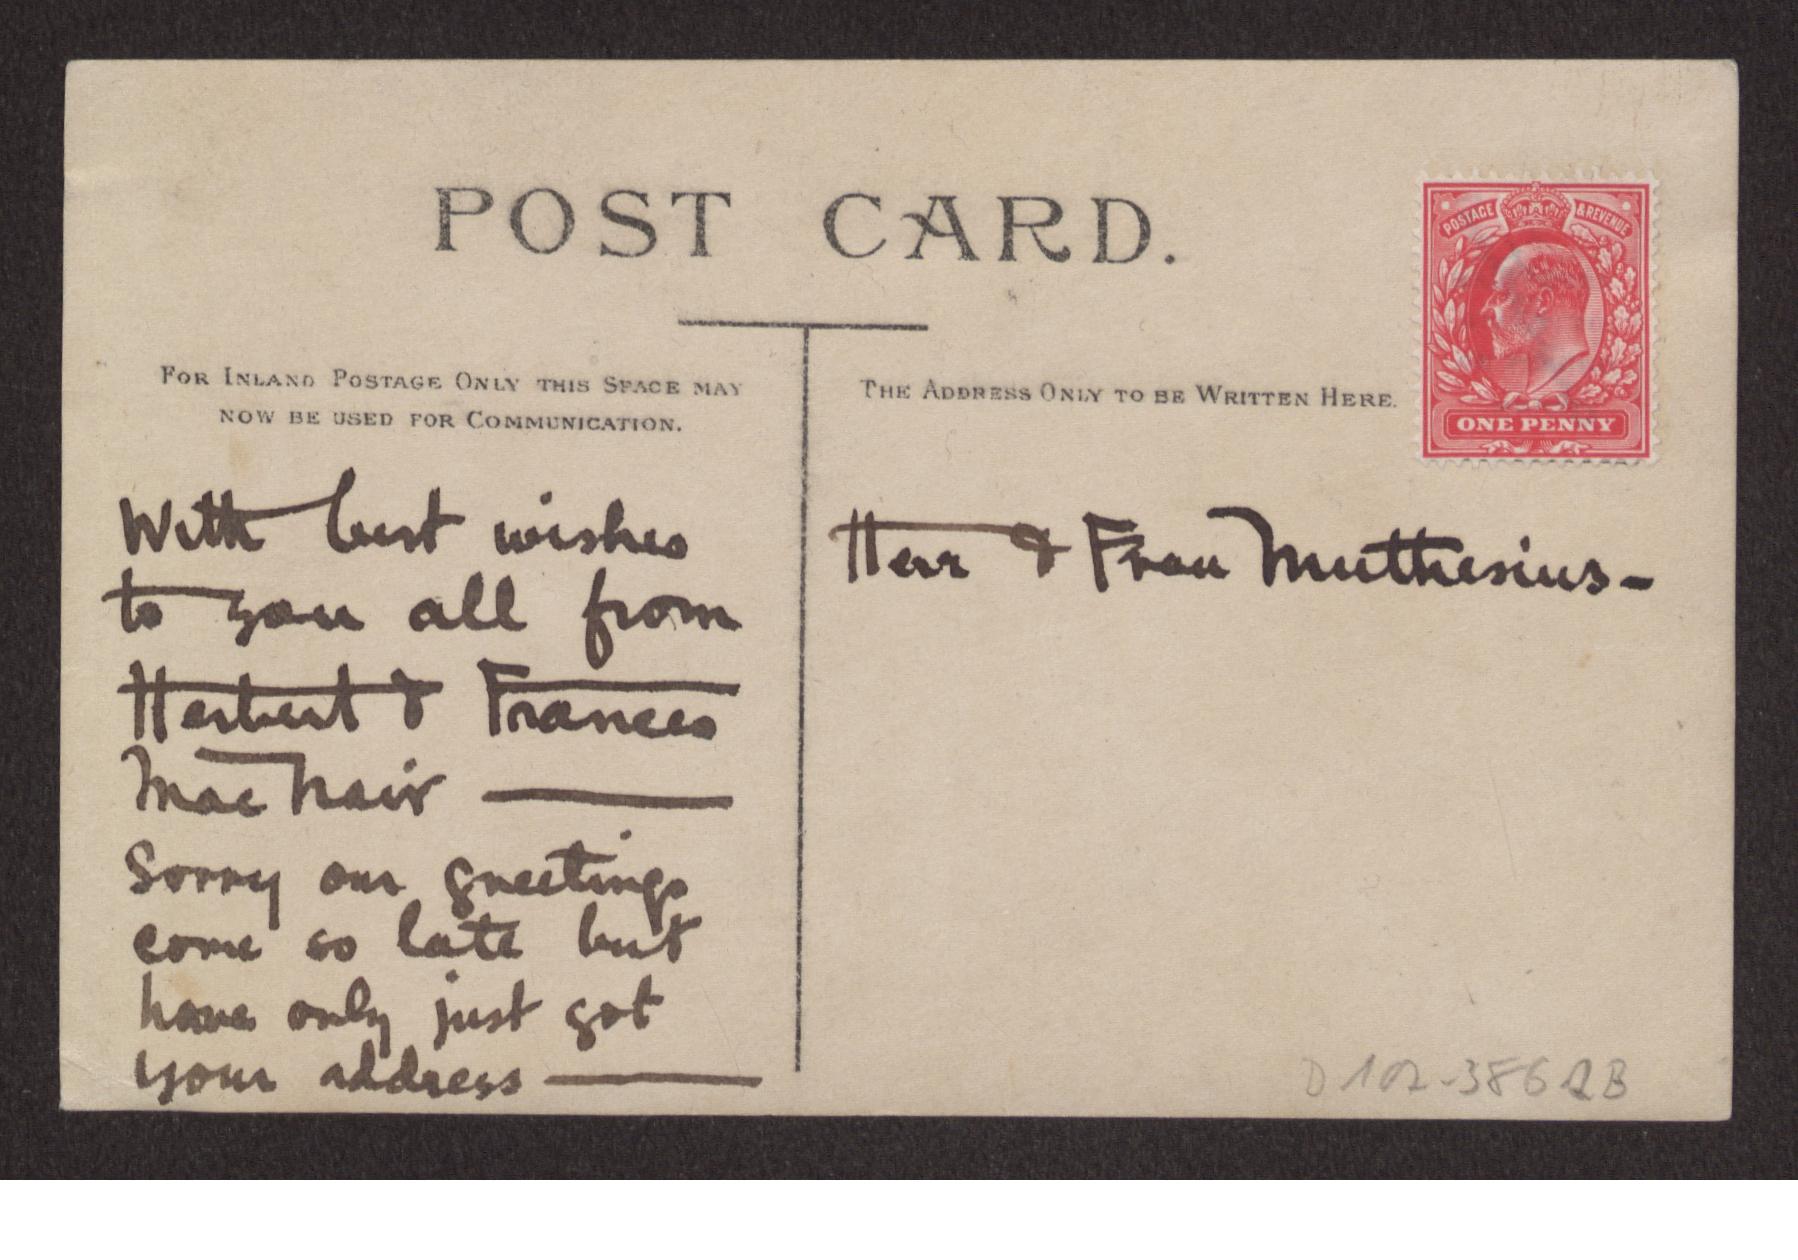 POST CARD.
FOR INLAND POSTAGE ONLY THIS SPACE MAY
NOW BE USED FOR COMMUNICATION.
With best wishes
to you all from
Herbert & Frances
Mac Nair —
Sorry our greetings
come so late but
have only just got
your address —
THE ADDRESS ONLY TO BE WRITTEN HERE.
Herr & Frau Muthesius-
POSTAGE & REVENUE
ONE PENNY
D 102-386